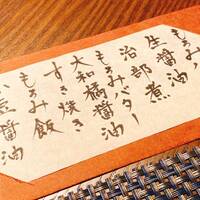 もろみ
生醤油
治部煮
もろみバター
大和橘醤油
すき焼き
もろみ飯
醤油